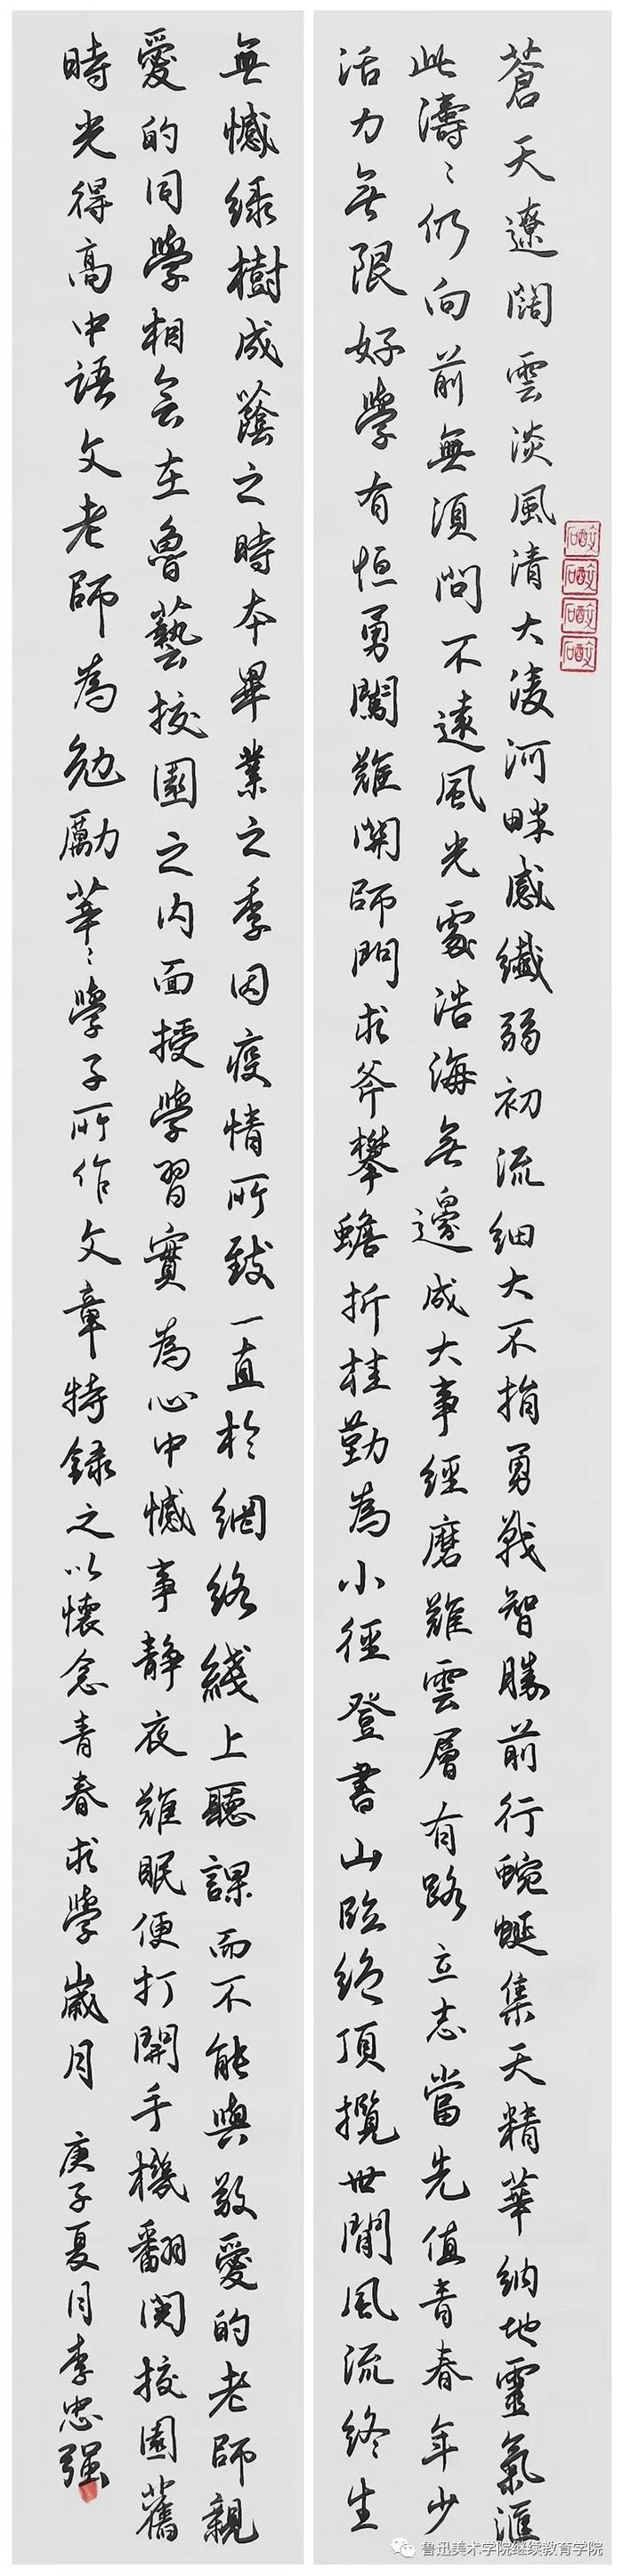 蒼天遼闊雲淡風清大淩河畔感纖弱初流細大不捐勇戰智勝前行蜿蜒集天精華納地靈氣匯
此濤〻仍向前無須問不遠風光處浩海無邊成大事經磨難雲層有路立志當先值青春年少
活力無限好學有恒勇闖難關師門求斧攀蟾折桂勤為小徑登書山臨絕頂攬世間風流終生
無憾綠樹成蔭之時本畢業之季因疫情所致一直於網絡綫上聽課而不能與敬愛的老師親
愛的同學相會在魯藝校園之內面授學習實為心中憾事靜夜難眠便打開手機翻閱校園舊
時光得高中語文老師為勉勵莘〻學子所作文章特錄之以懷念青春求學歲月 庚子夏月李忠強
鲁迅美术学院继续教育学院